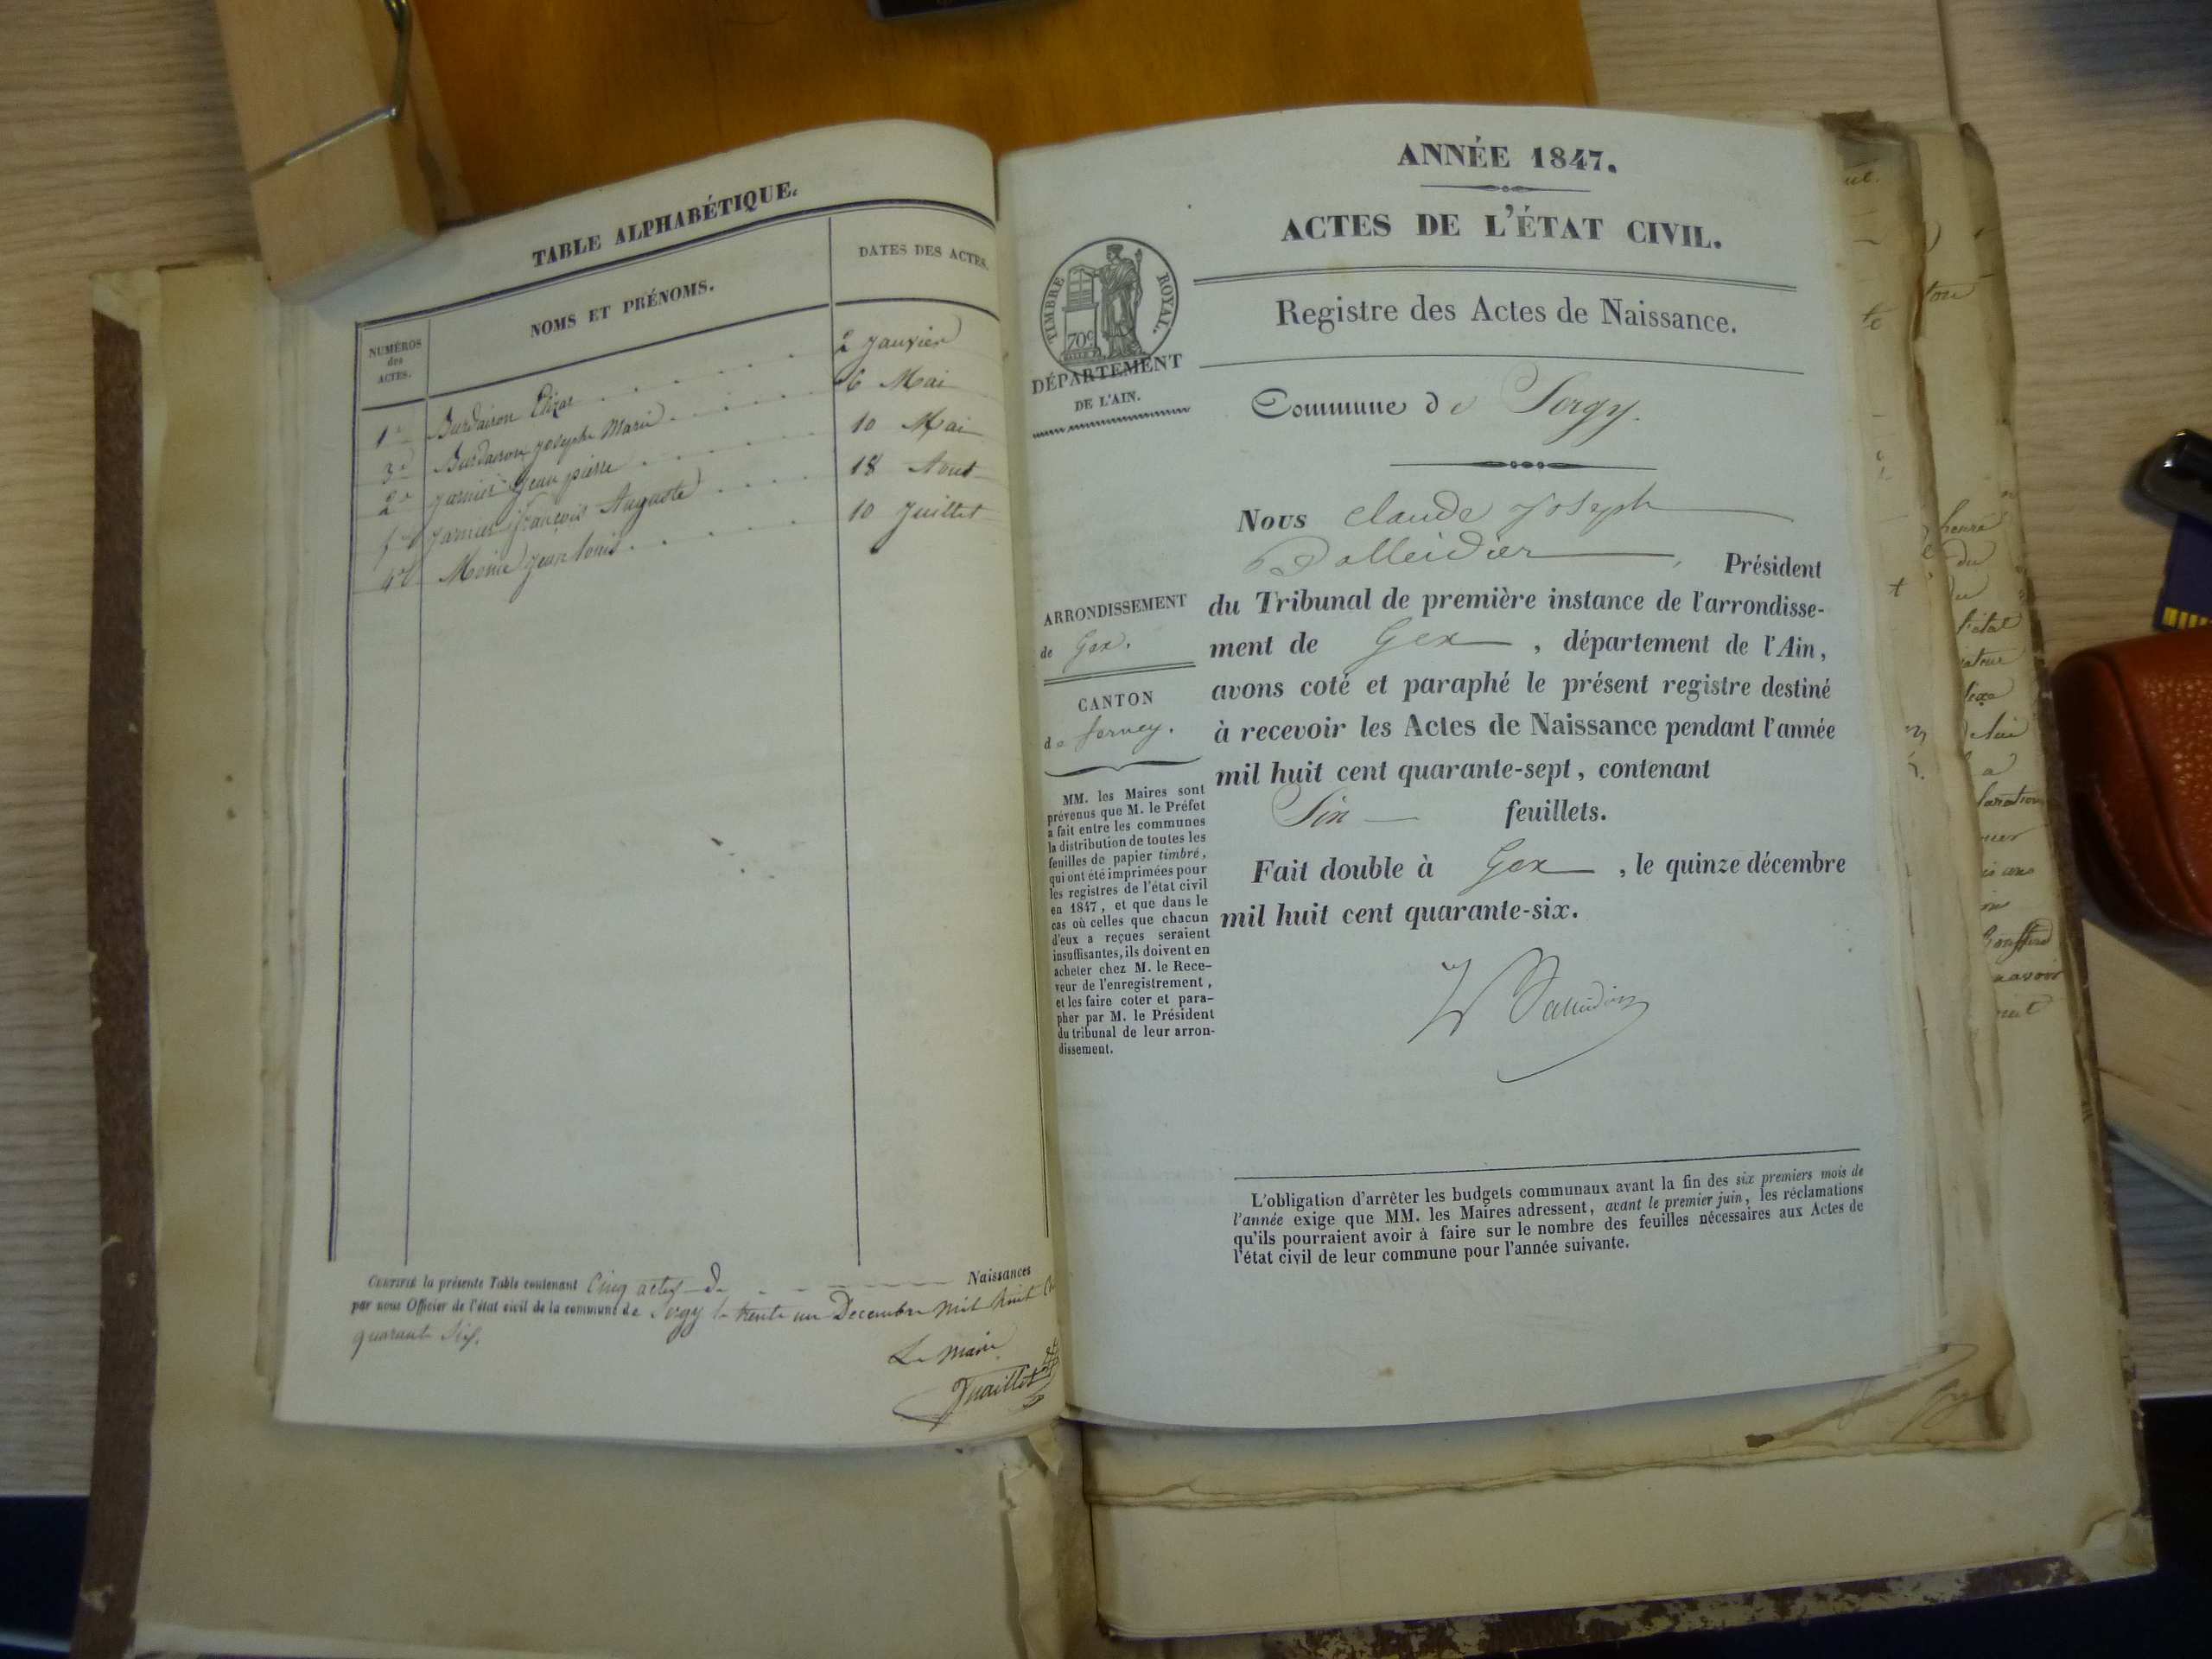 TABLE ALPHABÉTIQUE.
NUMÉROS
des
ACTES.
NOMS ET PRÉNOMS.
DATES DES ACTES.
1er Burdairon Elizae . . . . . . 2 Janvier
3e Burdairon Joseph Marie . . . . . 26 Mai
2e Jarnier Jean pierre . . . . . 10 Mai
Jarnier François Auguste . . . . 18 Aout
4e Jean louis . . . . . 10 Juillet
CERTIFIÉ la présente Table contenant Cinq actes de Naissances
par nous Officier de l'état civil de la commune de Sergy le trente un Decembre mil huit
quarante Six.
Le Maire
ANNÉE 1847.
ACTES DE L'ÉTAT CIVIL.
TIMBRE ROYAL.
70c
DÉPARTEMENT
DE L'AIN.
Registre des Actes de Naissance.
Commune de Sergy.
Nous Claude Joseph
Balleidier, Président
du Tribunal de première instance de l'arrondisse-
ment de Gex, département de l'Ain,
avons coté et paraphé le présent registre destiné
à recevoir les Actes de Naissance pendant l'année
mil huit cent quarante-sept, contenant
Six feuillets.
Fait double à Gex, le quinze décembre
mil huit cent quarante-six.
ARRONDISSEMENT
de Gex.
CANTON
de ferney.
MM. les Maires sont
prévenus que M. le Préfet
a fait entre les communes
la distribution de toutes les
feuilles de papier timbré,
qui ont été imprimées pour
les registres de l'état civil
en 1847, et que dans le
cas où celles que chacun
d'eux a reçues seraient
insuffisantes, ils doivent en
acheter chez M. le Rece-
veur de l'enregistrement,
et les faire coter et para-
pher par M. le Président
du tribunal de leur arron-
dissement.
L'obligation d'arrêter les budgets communaux avant la fin des six premiers mois de
l'année exige que MM. les Maires adressent, avant le premier juin, les réclamations
qu'ils pourraient avoir à faire sur le nombre des feuilles nécessaires aux Actes de
l'état civil de leur commune pour l'année suivante.